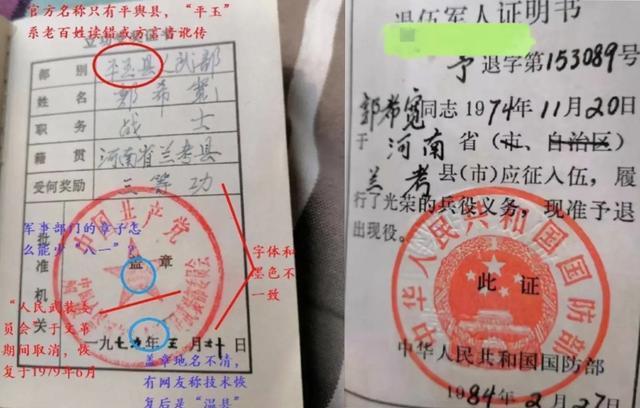 官方名称只有平舆县，“平玉”
系老百姓读错或方言音讹传
部 别
平玉县人民武部
姓 名
郭希宽
职 务
战 士
籍 贯
河南省兰考县
受何奖励
三等功
中国共产党
军事部门的章子怎
么能少“八一”？
字体和
墨色不
一致
批
准
机
关
盖 章
“人民武装委
员会”于文革
期间取消，恢
复于1979年6月
一九七九年三月二十日
盖章地名不清，
有网友称技术恢
复后是“温县”
退伍军人证明书
予退字第153089号
郭希宽同志1974年11月20日
于 河南 省（市、自治区）
兰考 县（市）应征入伍，履
行了光荣的兵役义务，现准予退
出现役。
中华人民共和国国防部
此 证
中华人民共和国国防部
1984年2月27日